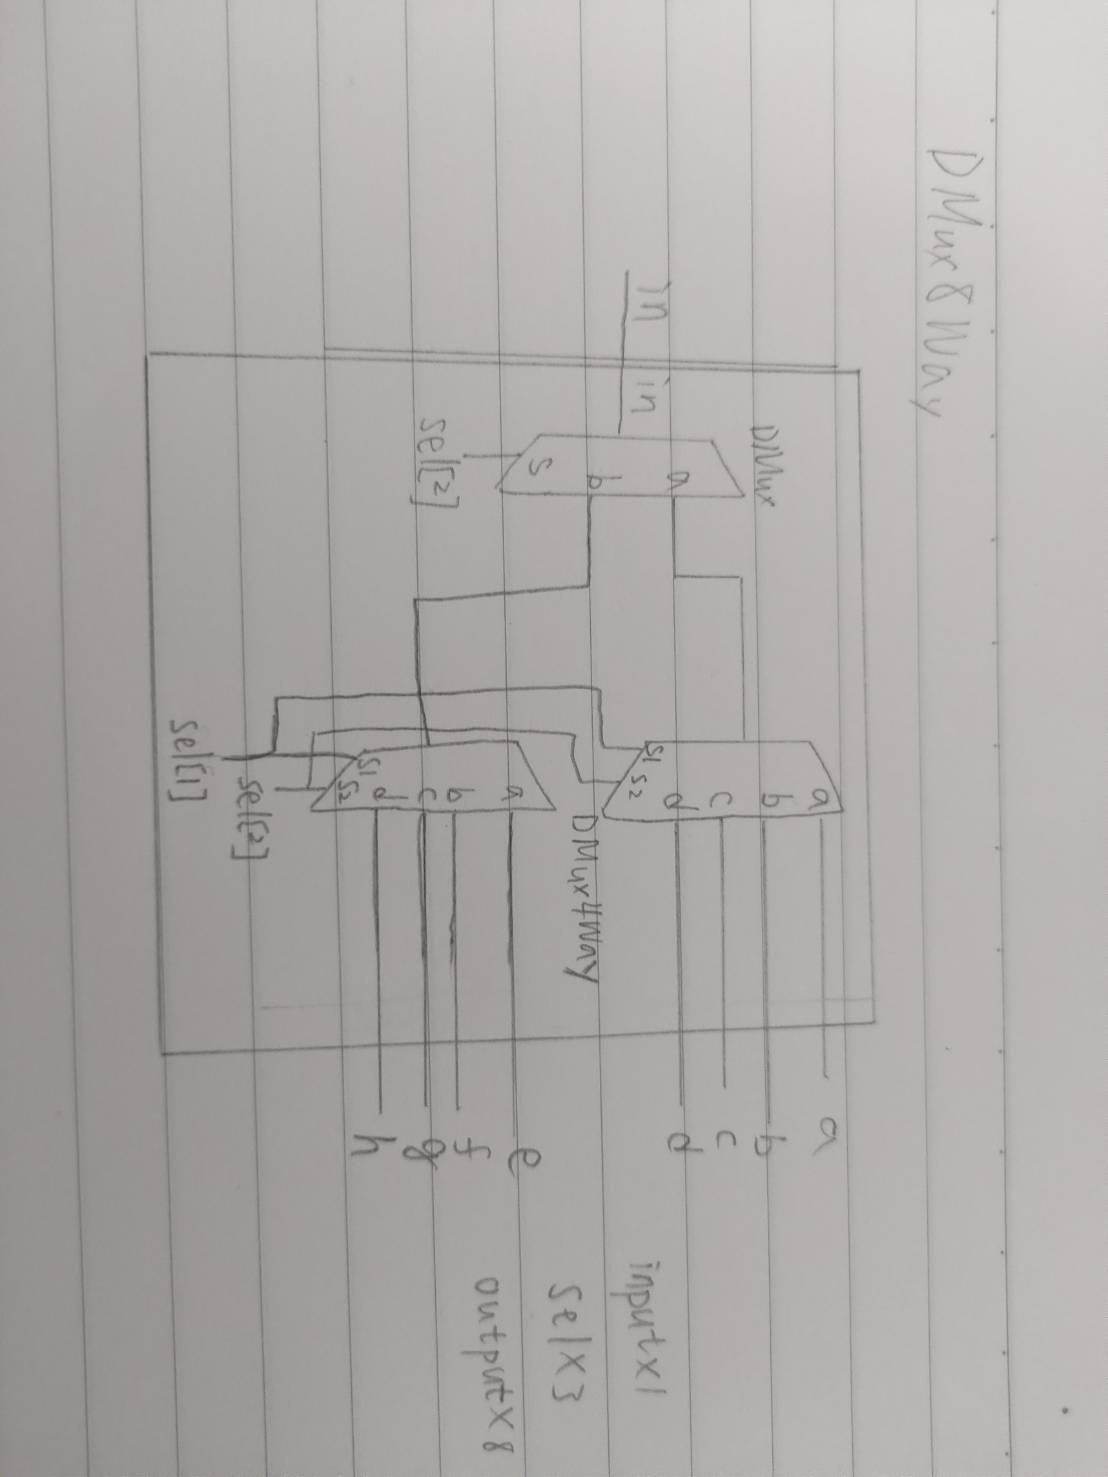 DMux8Way
DMux
in
in
a
b
s
sel[2]
a
b
c
d
s1
s2
DMux4Way
a
b
c
d
s1
s2
sel[2]
sel[1]
a
b
c
d
e
f
g
h
inputx1
selx3
outputx8